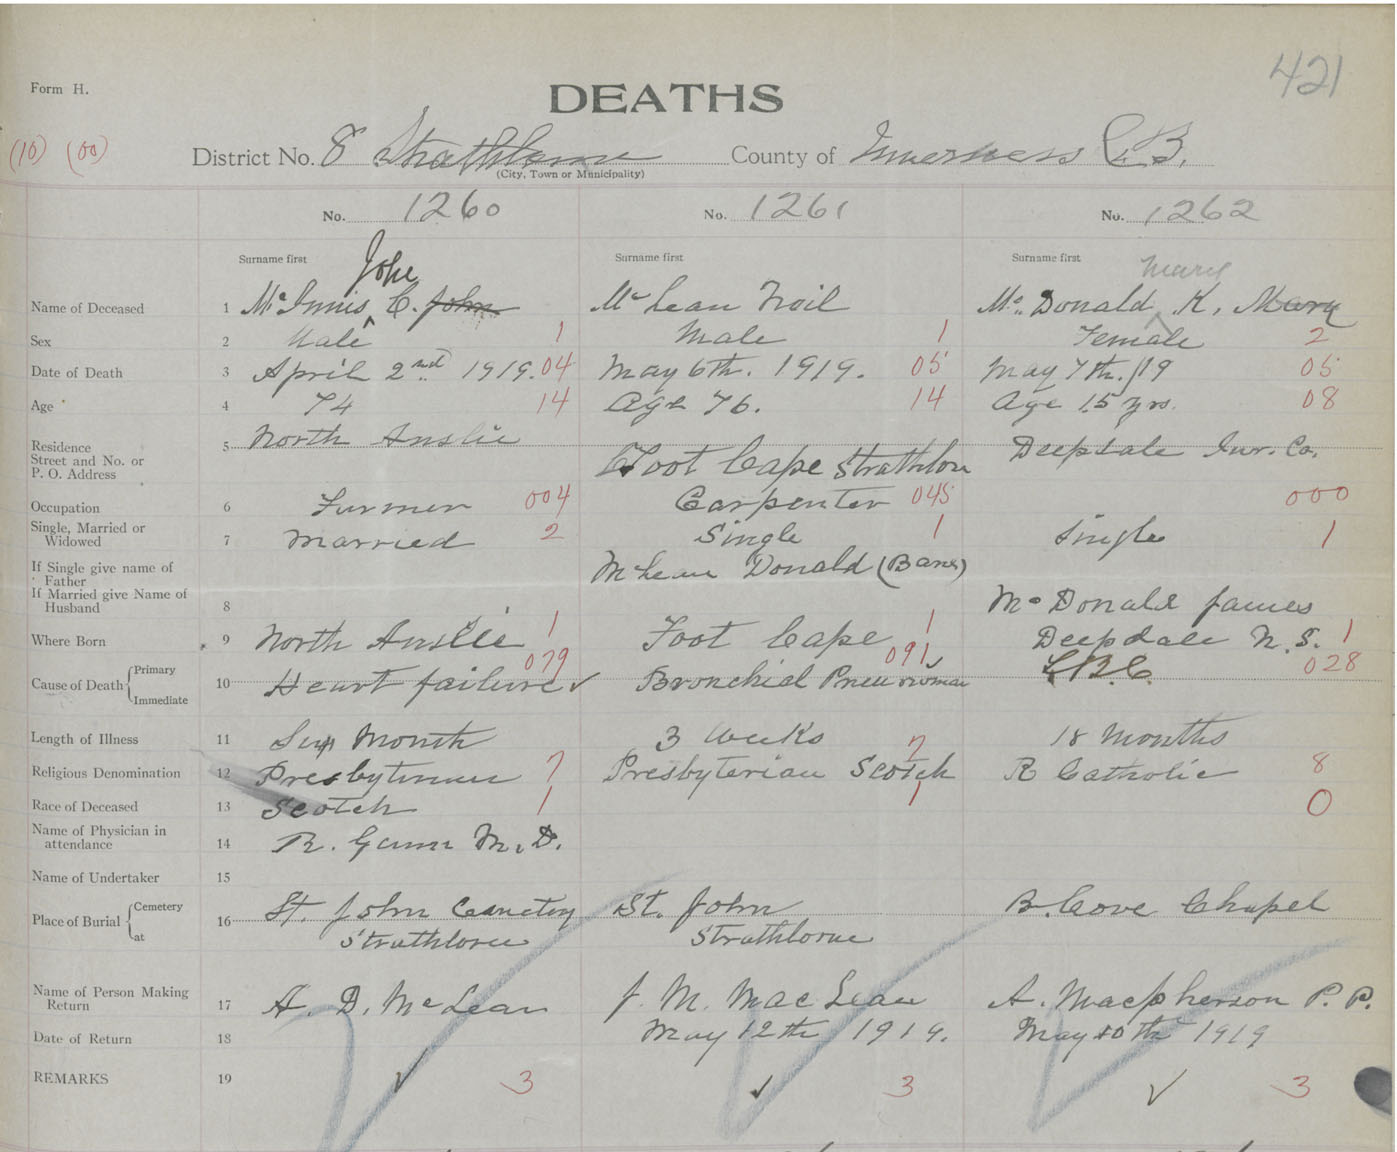 421
Form H.
DEATHS
(10) (00)
District No. 8 Strathlorne County of Inverness C.B.
(City, Town or Municipality)
No. 1260 No. 1261 No. 1262
Surname first John Surname first Surname first Mary
Name of Deceased 1 McInnis, C. John McLean Neil McDonald K. Mary
Sex 2 Male 1 Male 1 Female 2
Date of Death 3 April 2nd 1919. 04 May 6th. 1919. 05 May 7th./19 05
Age 4 74 14 Age 76. 14 Age 15 yrs. 08
Residence
Street and No. or
P. O. Address
5 North Anslie Foot Cape Strathlon Deepdale Inv. Co.
Occupation 6 Farmer 004 Carpenter 045 000
Single, Married or
Widowed
7 Married 2 Single 1 Single 1
If Single give name of
Father
If Married give Name of
Husband
8 McLean Donald (Bane) McDonald James
Where Born 9 North Anslie 1 Foot Cape 1 Deepdale N.S. 1
Cause of Death Primary
Immediate
10 Heart failure 079 Bronchial Pneumonia 091 028
Length of Illness 11 Month 3 Weeks 18 Months
Religious Denomination 12 Presbyterian 7 Presbyterian Scotch 7 R Catholic 8
Race of Deceased 13 Scotch 1 1 0
Name of Physician in
attendance
14 R. Gunn M.D.
Name of Undertaker 15
Place of Burial Cemetery
at
16 St. John Cemetery St. John B. Cove Chapel
Strathlorne Strathlorne
Name of Person Making
Return
17 A. D. McLean J. M. MacLean A. Macpherson P. P.
Date of Return 18 May 12th 1919. May 10th 1919
REMARKS 19 ✓ 3 ✓ 3 ✓ 3